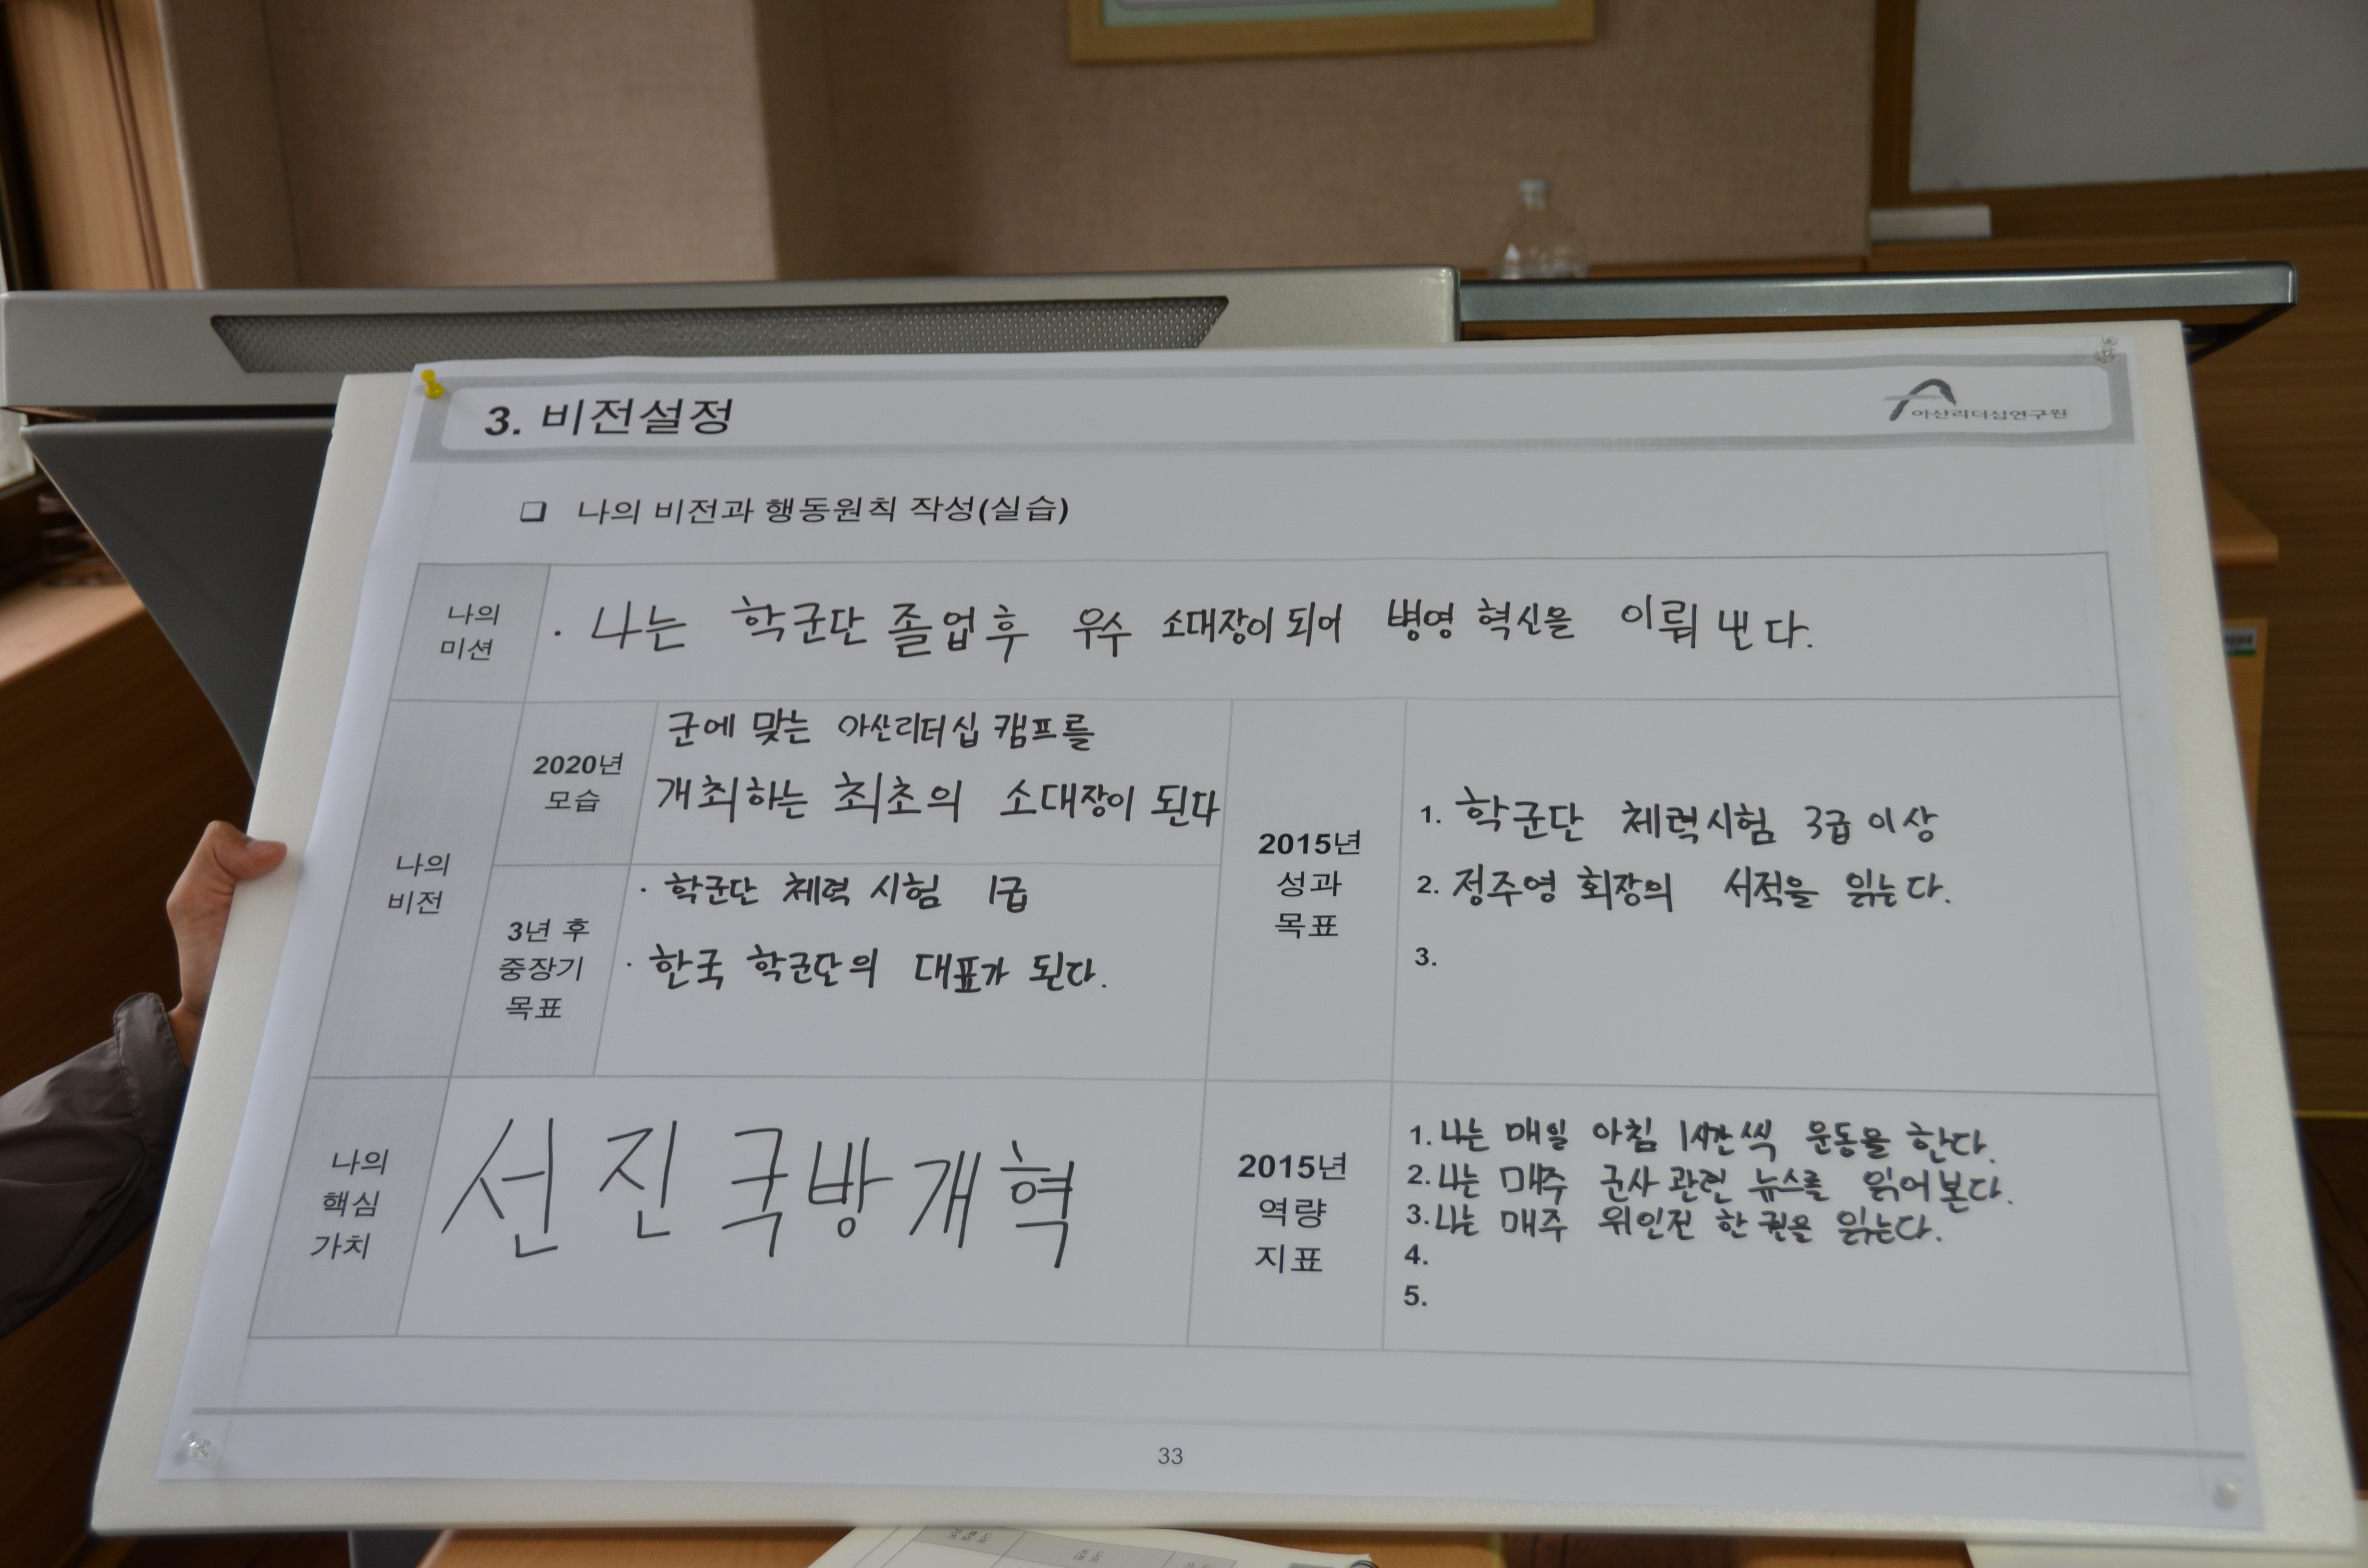 3. 비전설정
아산리더십연구원
❏ 나의 비전과 행동원칙 작성(실습)
나의
미션
· 나는 학군단 졸업후 우수 소대장이 되어 병영 혁신을 이뤄 낸다.
나의
비전
2020년
모습
군에 맞는 아산리더십 캠프를
개최하는 최초의 소대장이 된다
3년 후
중장기
목표
· 학군단 체력 시험 1급
· 한국 학군단의 대표가 된다.
2015년
성과
목표
1. 학군단 체력시험 3급 이상
2. 정주영 회장의 서적을 읽는다.
3.
나의
핵심
가치
선진국방개혁
2015년
역량
지표
1. 나는 매일 아침 1시간씩 운동을 한다.
2. 나는 매주 군사 관련 뉴스를 읽어본다.
3. 나는 매주 위인전 한 권을 읽는다.
4.
5.
33